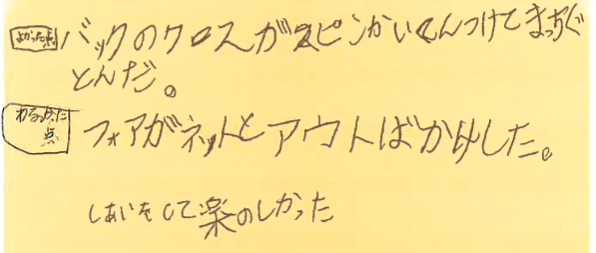 よかった点 バックのクロスがスピンかいてんつけてまっちぐ
とんだ。
わるかった点 フォアがネットとアウトばかりした。
しあいをして楽のしかった